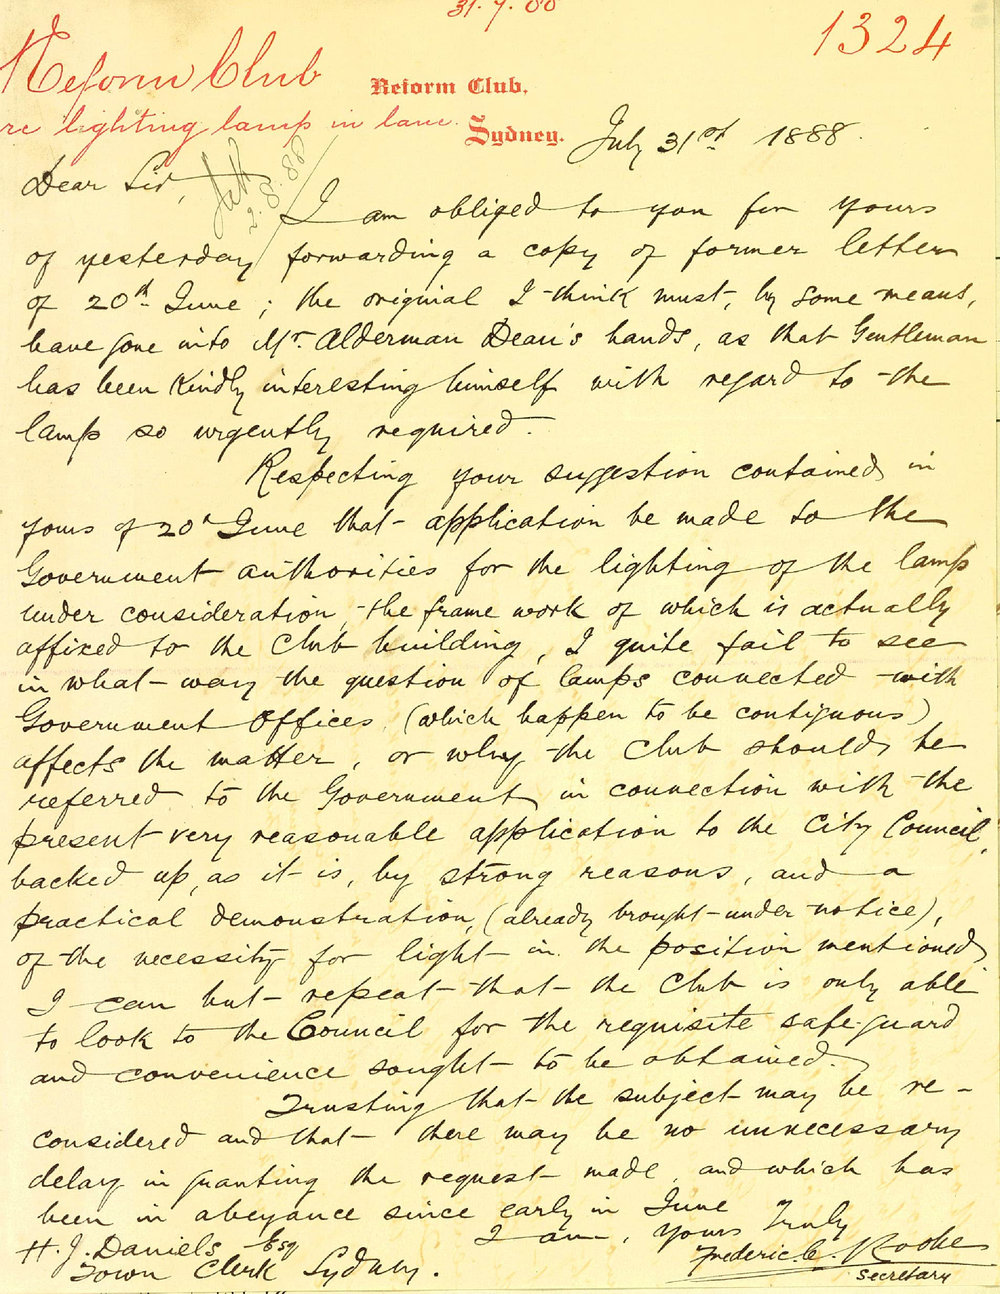 31.7.88
1324
Reform Club
re lighting lamp in lane.
Reform Club,
Sydney.
July 31st 1888.
2.8.88
Dear Sir,
I am obliged to you for yours
of yesterday forwarding a copy of former letter
of 20th June; the original I think must, by some means,
have gone into Mr. Alderman Dean's hands, as that Gentleman
has been kindly interesting himself with regard to the
lamp so urgently required.
Respecting your suggestion contained in
yours of 20th June that application be made to the
Government authorities for the lighting of the lamp
under consideration, the frame work of which is actually
affixed to the Club building, I quite fail to see
in what way the question of lamps connected with
Government Offices, (which happen to be contiguous)
affects the matter, or why the Club should be
referred to the Government in connection with the
present very reasonable application to the City Council,
backed up, as it is, by strong reasons, and a
practical demonstration, (already brought under notice),
of the necessity for light in the position mentioned
I can but repeat that the Club is only able
to look to the Council for the requisite safe-guard
and convenience sought to be obtained.
Trusting that the subject may be re-
considered and that there may be no unnecessary
delay in granting the request made, and which has
been in abeyance since early in June
I am, Yours Truly
Frederic C. Rooke
Secretary
H. J. Daniels Esq
Town Clerk Sydney.